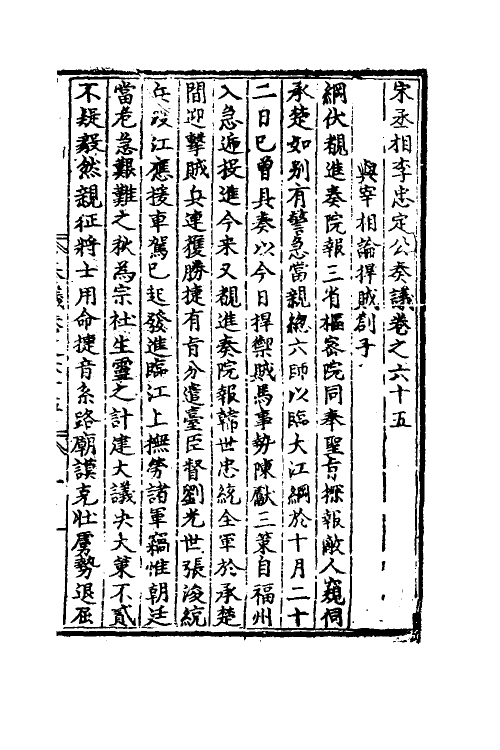 宋丞相李忠定公奏議卷之六十五
與宰相論捍賊劄子
綱伏覩進奏院報三省樞密院同奉聖旨探報敵人窺伺
承楚如別有警急當親總六師以臨大江綱於十月二十
二日已曾具奏以今日捍禦賊馬事勢陳獻三策自福州
入急遞投進今來又覩進奏院報韓世忠統全軍於承楚
間迎擊賊兵連獲勝捷有旨分遣臺臣督劉光世張浚統
兵渡江應接車駕已起發進臨江上撫勞諸軍竊惟朝廷
當危急艱難之秋為宗社生靈之計建大議決大策不貳
不疑毅然親征將士用命捷音系路廟謨克壯虜勢退屈